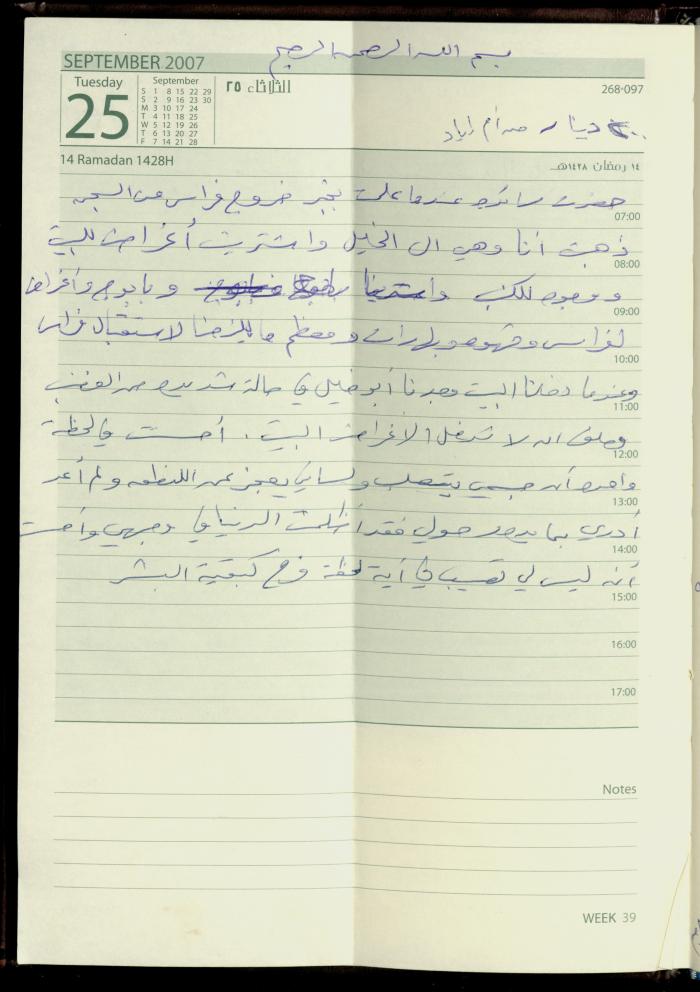 بسم الله الرحمن الرحيم
SEPTEMBER 2007
Tuesday
25
September
S 1 8 15 22 29
S 2 9 16 23 30
M 3 10 17 24
T 4 11 18 25
W 5 12 19 26
T 6 13 20 27
F 7 14 21 28
الثلاثاء ٢٥
268-097
دينار من أم إياد
14 Ramadan 1428H
١٤ رمضان ١٤٢٨هـ
حضرت عندما علمت بخبر خروج فراس من السجن
07:00
ذهبت أنا وهي الى الخليل واشتريت أغراض للبيت
08:00
و وأغراض
09:00
لفراس و ومعظم ما يلزمنا لاستقبال فراس
10:00
وعندما دخلنا البيت وجدنا أبو خليل في حالة شديدة من الغضب
11:00
وحلف ان لا تدخل الأغراض البيت . أحسست في لحظة
12:00
واحدة أن جسمي ولساني يعجز عن النطق ولم أعد
13:00
أدري بما يدور حولي فقد أظلمت الدنيا في وجهي وأحسست
14:00
أنه ليس لي نصيب في أية لحظة فرح كبقية البشر
15:00
16:00
17:00
Notes
WEEK 39